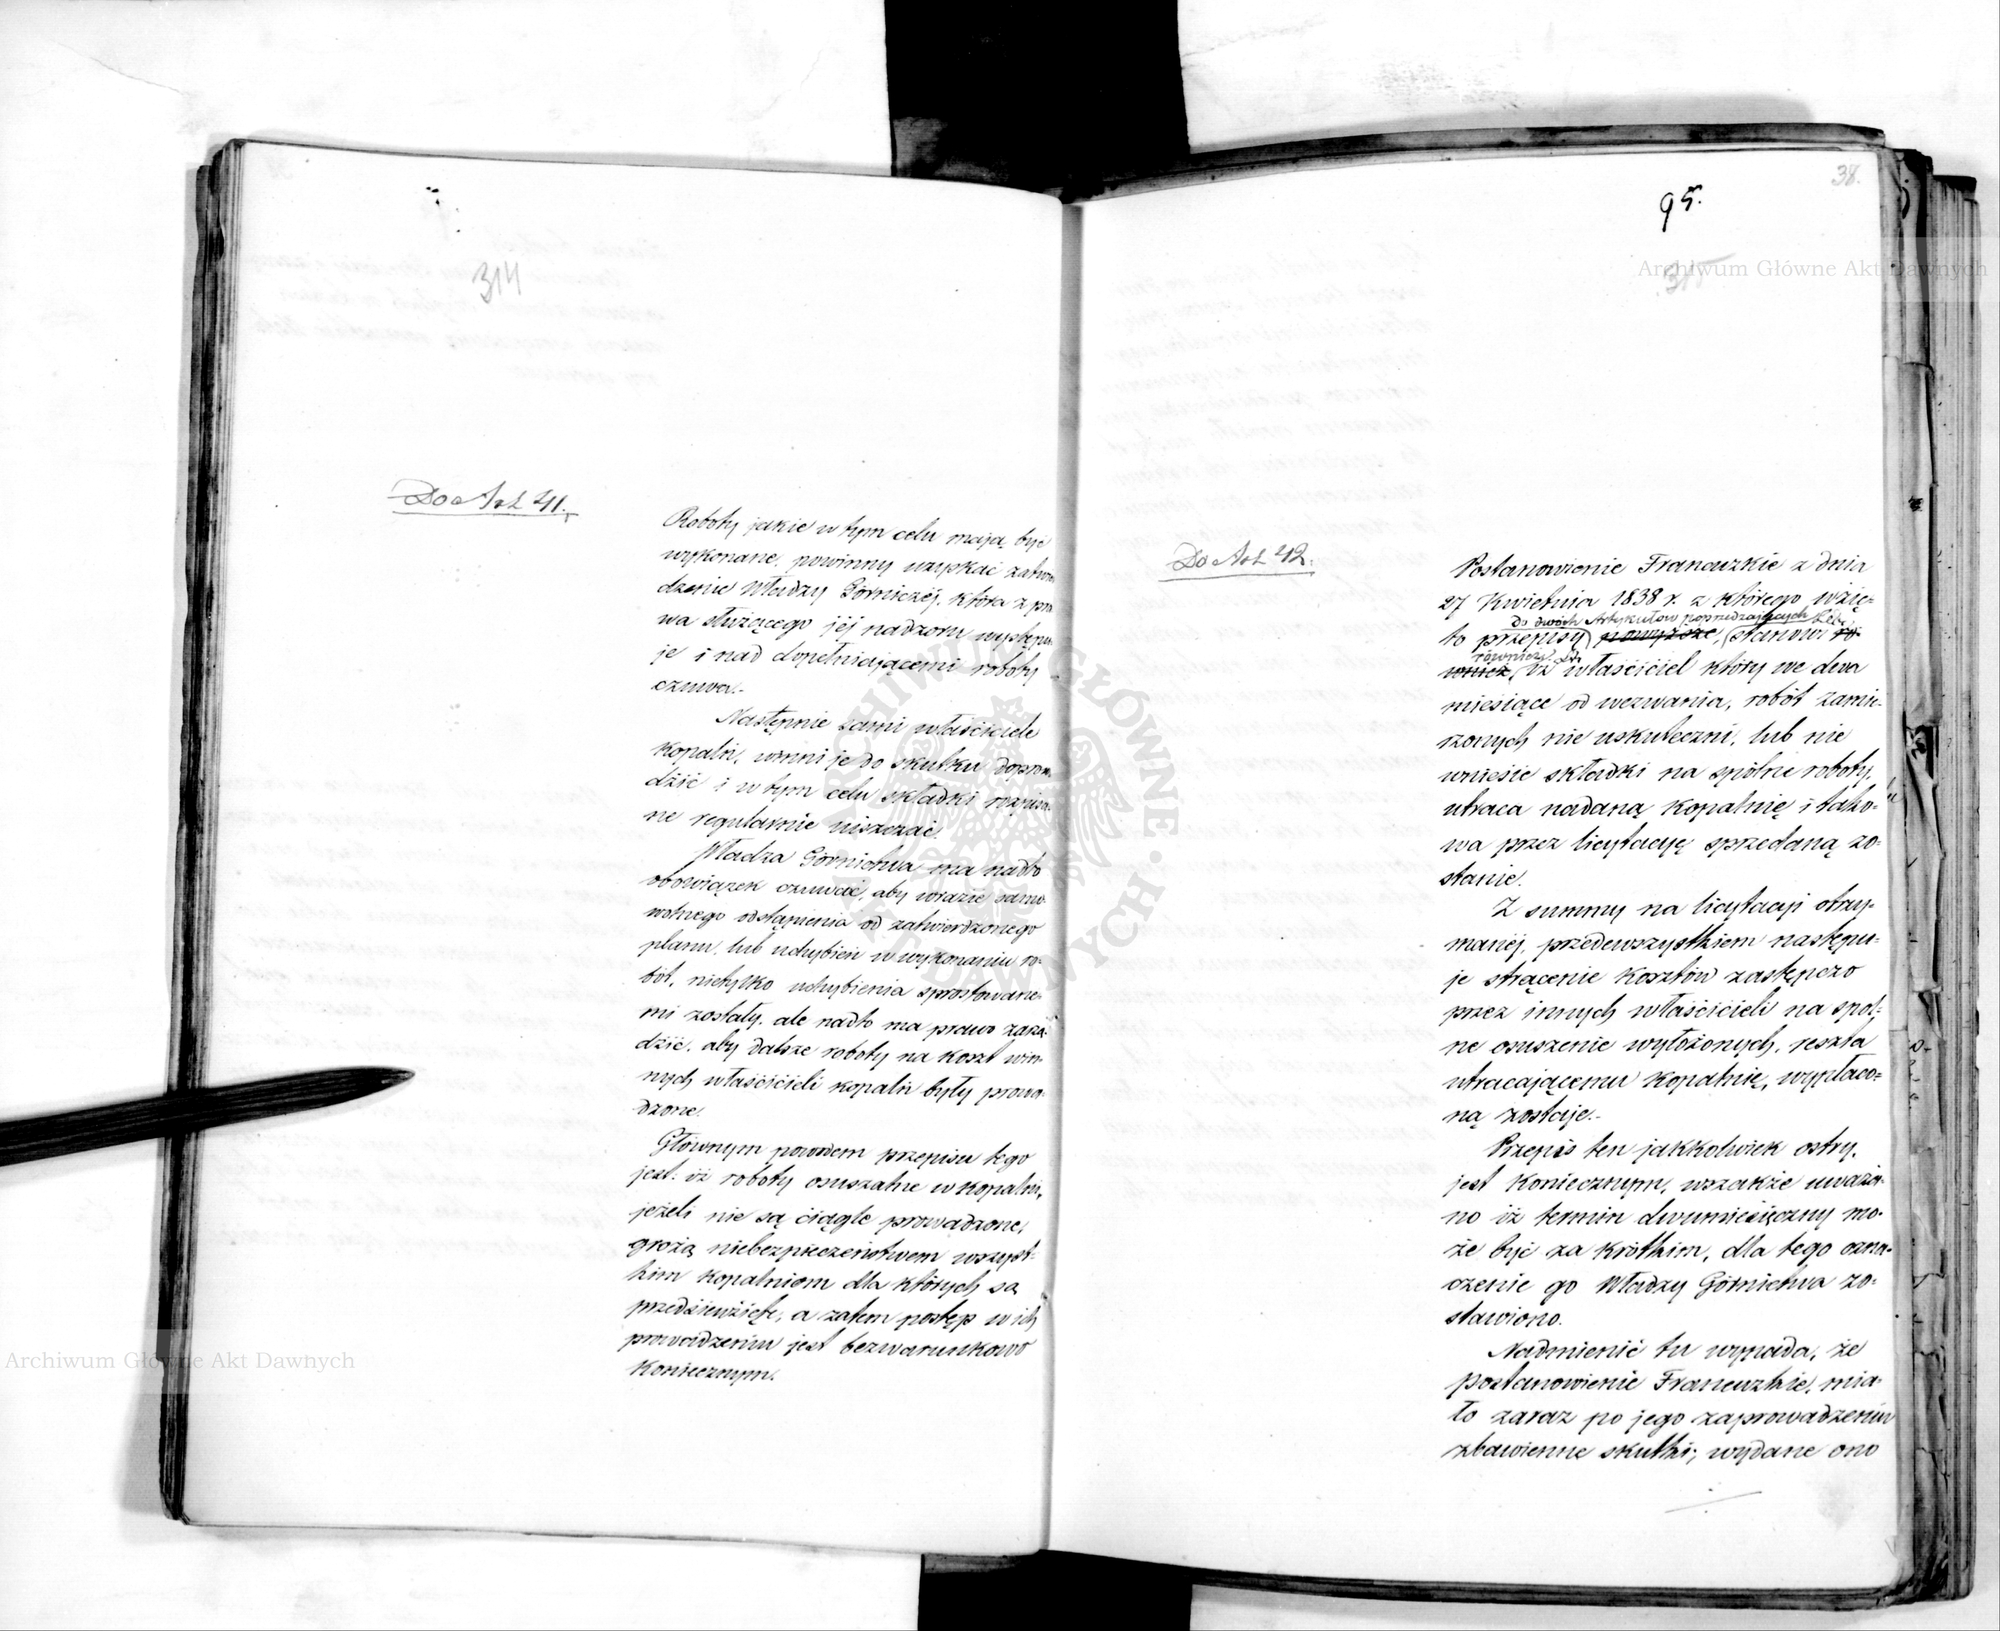 314
Do Art 41.
Roboty jakie w tym celu mają być
wykonane, powinny uzyskać zatwier
dzenie Władzy Górniczéj, która z pra
wa służącego jéj nadzoru występu
je i nad dopełniającemi roboty
czuwa.-
Następnie sami właściciele
kopalń, winni je do skutku doprowa
dzić i w tym celu składki rozpisa
ne regularnie uiszczać.
Władza Górnictwa ma nadto
obowiązek czuwać, aby wrazie samo
wolnego odstąpienia od zatwierdzonego
planu, lub uchybień w wykonaniu ro=
bót, nietylko uchybienia sprostowane=
mi zostały, ale nadto ma prawo zarzą
dzić, aby dalsze roboty na koszt win=
nych właścicieli kopalń były prowa=
dzone.
Głównym powodem przepisu tego
jest: iż roboty osuszalne w kopalni,
jeżeli nie są ciągle prowadzone,
grożą niebezpieczeństwem wszyst=
kim kopalniom dla których są
przedsięwzięte, a zatem postęp w ich
prowadzeniu jest bezwarunkowo
koniecznym.
38.
95.
315
Do Art 42.
Postanowienie Francuzkie z dnia
27 Kwietnia 1838 r. z którego wzię=
do dwóch Artykułów poprzedzających
to przepisy powyższe, stanowi ró=
również
wnież, iż właściciel który we dwa
miesiące od wezwania, robót zamie=
rzonych nie uskuteczni, lub nie
wniesie składki na spólne roboty,
utraca nadaną kopalnię i tako=
wa przez licytacyę sprzedaną zo=
stanie.
Z summy na licytacyi otrzy=
manéj, przedewszystkiem następu=
je strącenie kosztów zastępczo
przez innych właścicieli na spól=
ne osuszenie wyłożonych, reszta
utracającemu kopalnię, wypłaco=
ną zostaje.-
Przepis ten jakkolwiek ostry,
jest koniecznym, wszakże uważa=
no iż termin dwumiesięczny mo=
że być za krótkim, dla tego ozna=
czenie go Władzy Górnictwa zo=
stawiono.
Nadmienić tu wypada, że
postanowienie Francuzkie, mia=
ło zaraz po jego zaprowadzeniu
zbawienne skutki; wydane ono
Archiwum Główne Akt Dawnych
Archiwum Główne Akt Dawnych
ARCHIWUM GŁÓWNE AKT DAWNYCH